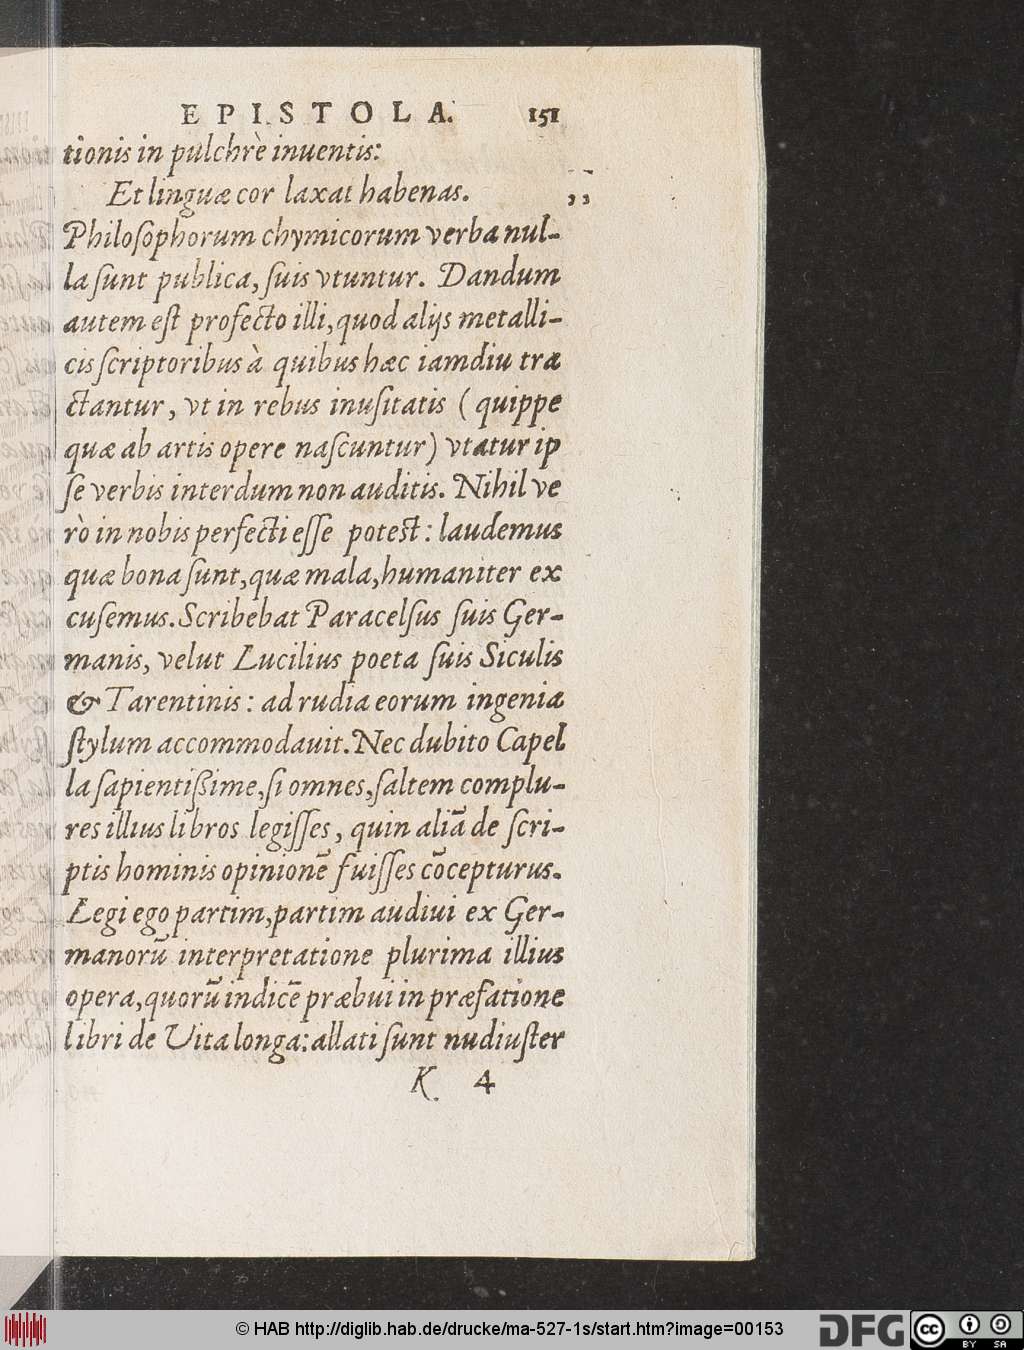 EPISTOLA. 151
tionis in pulchrè inuentis:
Et linguæ cor laxat habenas. ,,
Philoſophorum chymicorum verba nul-
la ſunt publica, ſuis vtuntur. Dandum
autem eſt profecto illi, quod alijs metalli-
cis ſcriptoribus à quibus hæc iamdiu tra
ctantur, vt in rebus inuſitatis ( quippe
quæ ab artis opere naſcuntur) vtatur ip
ſe verbis interdum non auditis. Nihil ve
rò in nobis perfecti eſſe potest: laudemus
quæ bona ſunt, quæ mala, humaniter ex
cuſemus. Scribebat Paracelſus ſuis Ger-
manis, velut Lucilius poeta ſuis Siculis
& Tarentinis: ad rudia eorum ingenia
ſtylum accommodauit. Nec dubito Capel
la ſapientißime, ſi omnes, ſaltem complu-
res illius libros legiſſes, quin aliā de ſcri-
ptis hominis opinionē fuiſſes cōcepturus.
Legi ego partim, partim audiui ex Ger-
manorū interpretatione plurima illius
opera, quorū indicē præbui in præfatione
libri de Uita longa: allati ſunt nudiuſter
K 4
© HAB http://diglib.hab.de/drucke/ma-527-1s/start.htm?image=00153
DFG
cc BY SA